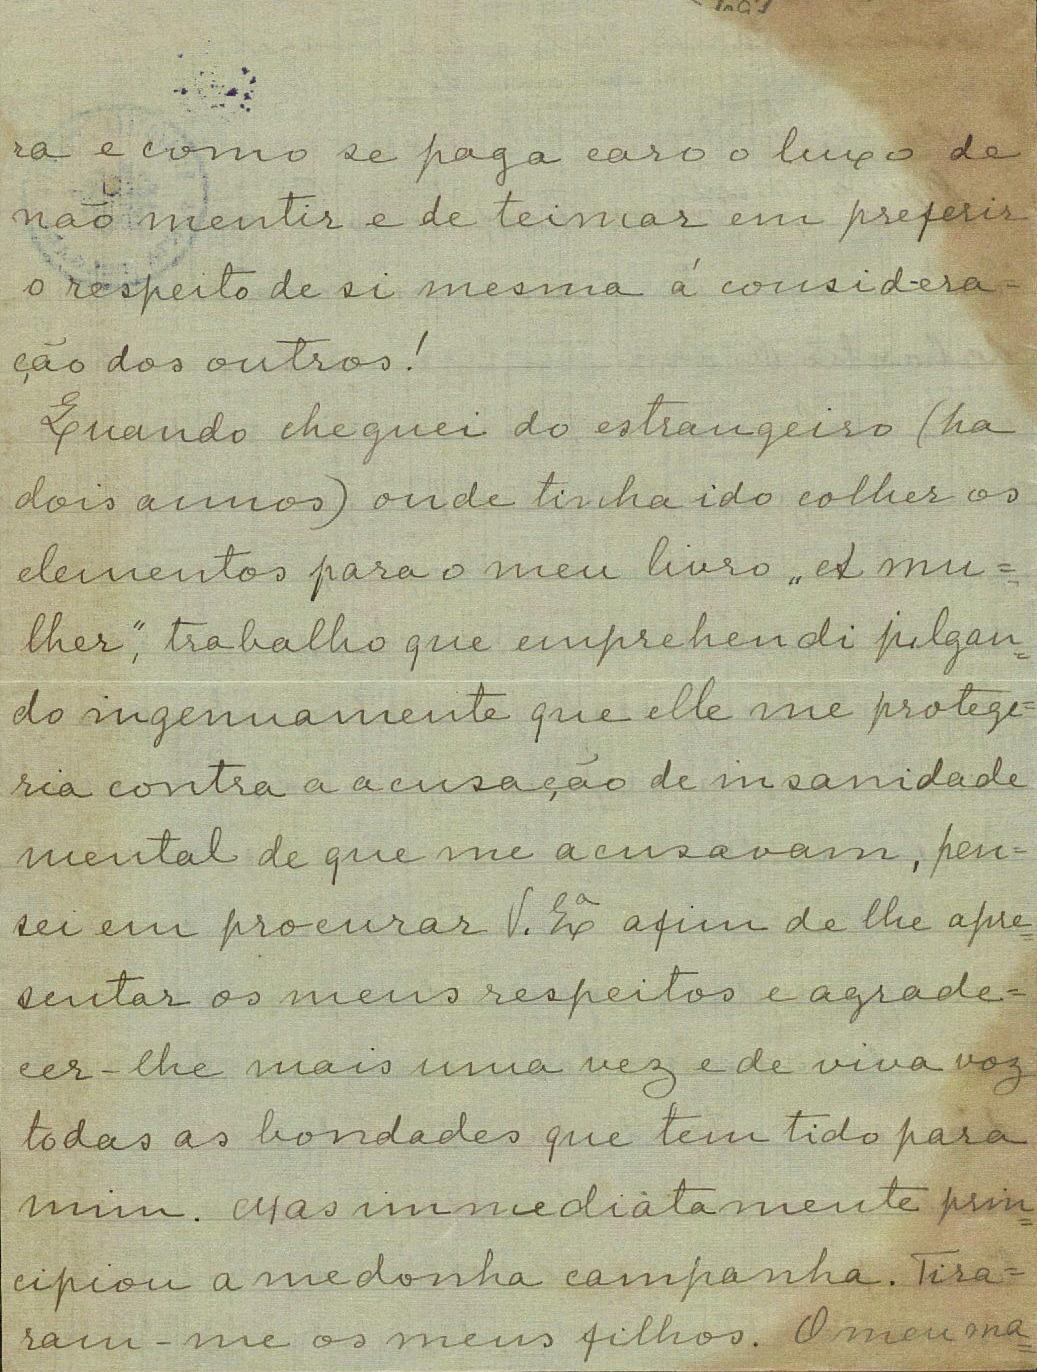 ra e como se paga caro o luxo de
não mentir e de teimar em preferir
o respeito de si mesma á considera=
ção dos outros!
Quando cheguei do estrangeiro (ha
dois annos) onde tinha ido colher os
elementos para o meu livro „A mu=
lher", trabalho que emprehendi julgan=
do ingenuamente que elle me protege=
ria contra a acusação de insanidade
mental de que me acusavam, pen=
sei em procurar V. Exª afim de lhe apre=
sentar os meus respeitos e agrade=
cer-lhe mais uma vez e de viva voz
todas as bondades que tem tido para
mim. Mas immediatamente prin=
cipiou a medonha campanha. Tira=
ram-me os meus filhos. O meu ma=